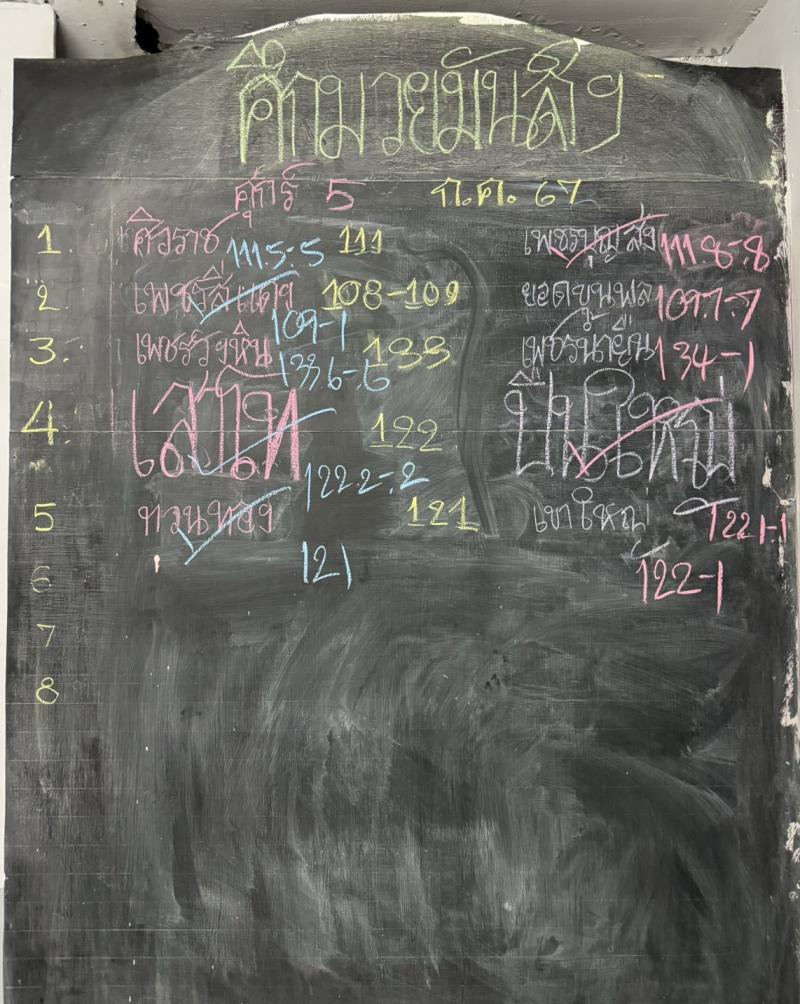 ศึกมวยมันส์ๆ
ศุกร์ 5 ก.ค. 67
1. ศิวราช 111.5-.5 111 เพชรบุญส่ง 111.8-.8
2. เพชรสีแดง 108-109 ยอดขุนพล 109.7-.7
109-1
3. เพชรวังหิน 133 เพชรน้ำยืน 134-1
133.6-.6
4. เสาโท 122 ปืนใหม่
122.2-.2
5 ทวนทอง 121 เขาใหญ่ 122.1-1
6 121 122-1
7
8